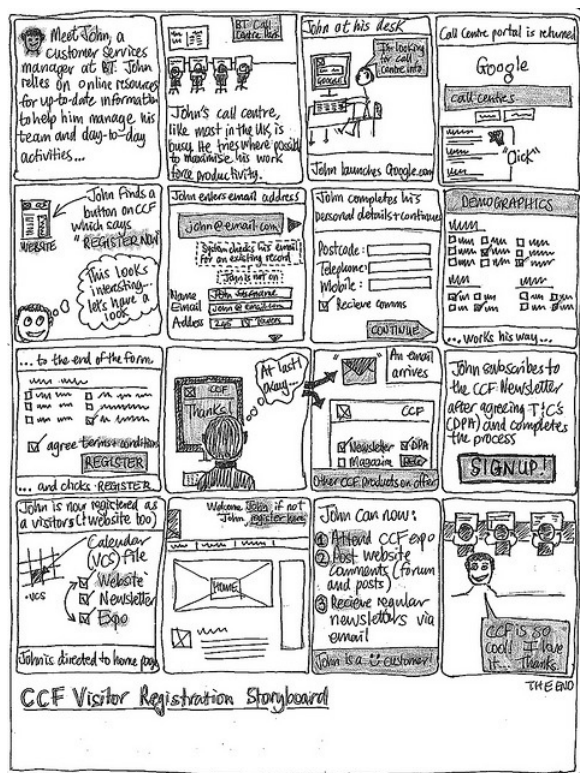 Meet John, a
customer services
manager at BT. John
relies on online resources
for up-to-date information
to help him manage his
team and day-to-day
activities...
BT Call
Centre
John's call centre,
like most in the UK, is
busy. He tries where possible
to maximise his work
force productivity.
John at his desk
I'm looking
for call
centre info
GOOGLE
John launches Google.com
Call Centre portal is returned
Google
call centres
"Click"
John finds a
button on CCF
which says
"REGISTER NOW
WEBSITE
This looks
interesting...
let's have a
look
John enters email address
john@email.com
System checks his email
for an existing record
John is not on
Name
Email
Address
John completes his
personal details + continues
Postcode:
Telephone:
Mobile:
Recieve comms
CONTINUE
DEMOGRAPHICS
...works his way...
... to the end of the form
agree terms + conditions
REGISTER
... and clicks REGISTER
CCF
Thanks!
At last!
okay...
An email
arrives
CCF
Newsletter
DPA
Magazine
Other CCF products on offer
John subscribes to
the CCF Newsletter
after agreeing T+C's
(DPA) and completes
the process
SIGNUP!
John is now registered as
a visitors (+website too)
Calendar
(VCS) file
.vcs
Website
Newsletter
Expo
John is directed to home page
Welcome John if not
John register here
HOME
John can now:
1 Attend CCF expo
2 Post website
comments (forum
and posts)
3 Recieve regular
newsletters via
email
John is a customer!
CCF is so
cool! I love
it... Thanks.
THE END
CCF Visitor Registration Storyboard